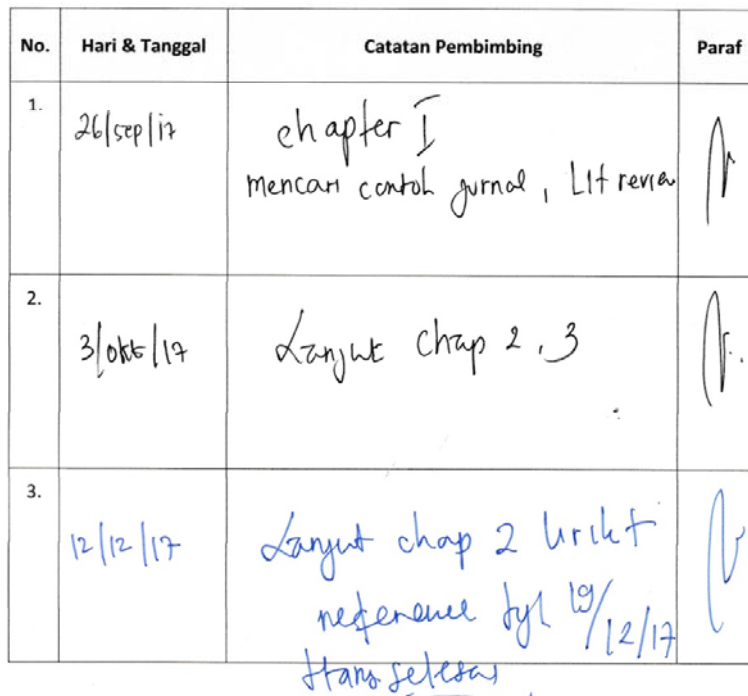 No. Hari & Tanggal Catatan Pembimbing Paraf
1. 26/sep/17 chapter I
mencari contoh jurnal, Lit review
2. 3/okt/17 Lanjut chap 2, 3
3. 12/12/17 Lanjut chap 2
reference tgl 19/12/17
Harus selesai